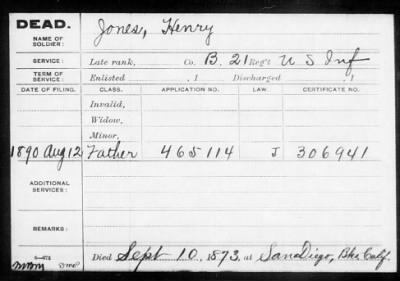 DEAD.
NAME OF SOLDIER: Jones, Henry
SERVICE: Late rank, Co. B. 21 Reg't U S Inf
TERM OF SERVICE: Enlisted , 1 Discharged , 1
DATE OF FILING. CLASS. APPLICATION NO. LAW. CERTIFICATE NO.
Invalid,
Widow,
Minor,
1890 Aug 12 Father 465114 J 306941
ADDITIONAL SERVICES:
REMARKS:
Died Sept 10, 1873, at San Diego, Bks Calf.